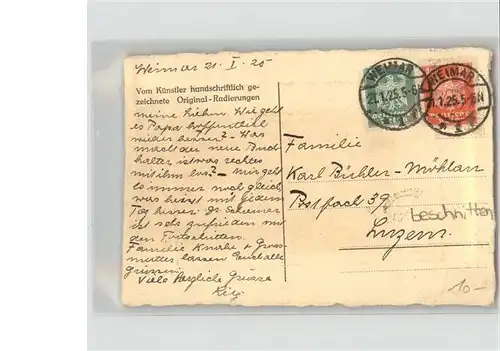 Weimar 21. I. 25
Vom Künstler handschriftlich ge-
zeichnete Original-Radierungen
meine Lieben. Wie geht
es Papa hoffentlich
wieder besser? – Was
macht der neue Buch
halter, ist was rechtes
mit ihm los? – mir geht
es immer noch gleich
was heisst mit jedem
Tag besser. Dr.
ist sehr zufrieden mit
den Fortschritten.
Familie Knabe & Gross-
mutter lassen Euch alle
grüssen.
Viele herzliche Grüsse
WEIMAR
21.1.25.5-6N
WEIMAR
21.1.25.5-6N
Familie
Karl Bühler-Möhlau
Postfach 39
beschnitten
Luzern.
10-